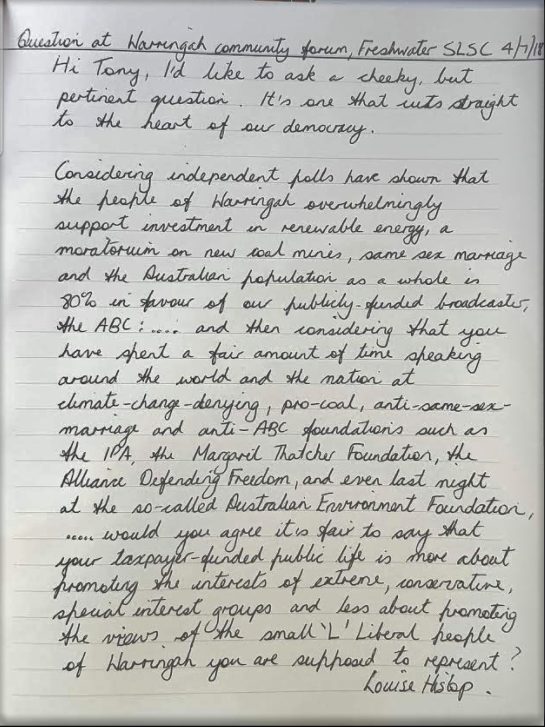 Question at Warringah community forum, Freshwater SLSC 4/7/18
Hi Tony, I'd like to ask a cheeky, but
pertinent question. It's one that cuts straight
to the heart of our democracy.
Considering independent polls have shown that
the people of Warringah overwhelmingly
support investment in renewable energy, a
moratorium on new coal mines, same sex marriage
and the Australian population as a whole is
80% in favour of our publicly-funded broadcaster,
the ABC: ..... and then considering that you
have spent a fair amount of time speaking
around the world and the nation at
climate-change-denying, pro-coal, anti-same-sex-
marriage and anti-ABC foundations such as
the IPA, the Margaret Thatcher Foundation, the
Alliance Defending Freedom, and even last night
at the so-called Australian Environment Foundation,
..... would you agree it is fair to say that
your taxpayer-funded public life is more about
promoting the interests of extreme, conservative,
special interest groups and less about promoting
the views of the small 'L' Liberal people
of Warringah you are supposed to represent?
Louise Hislop.